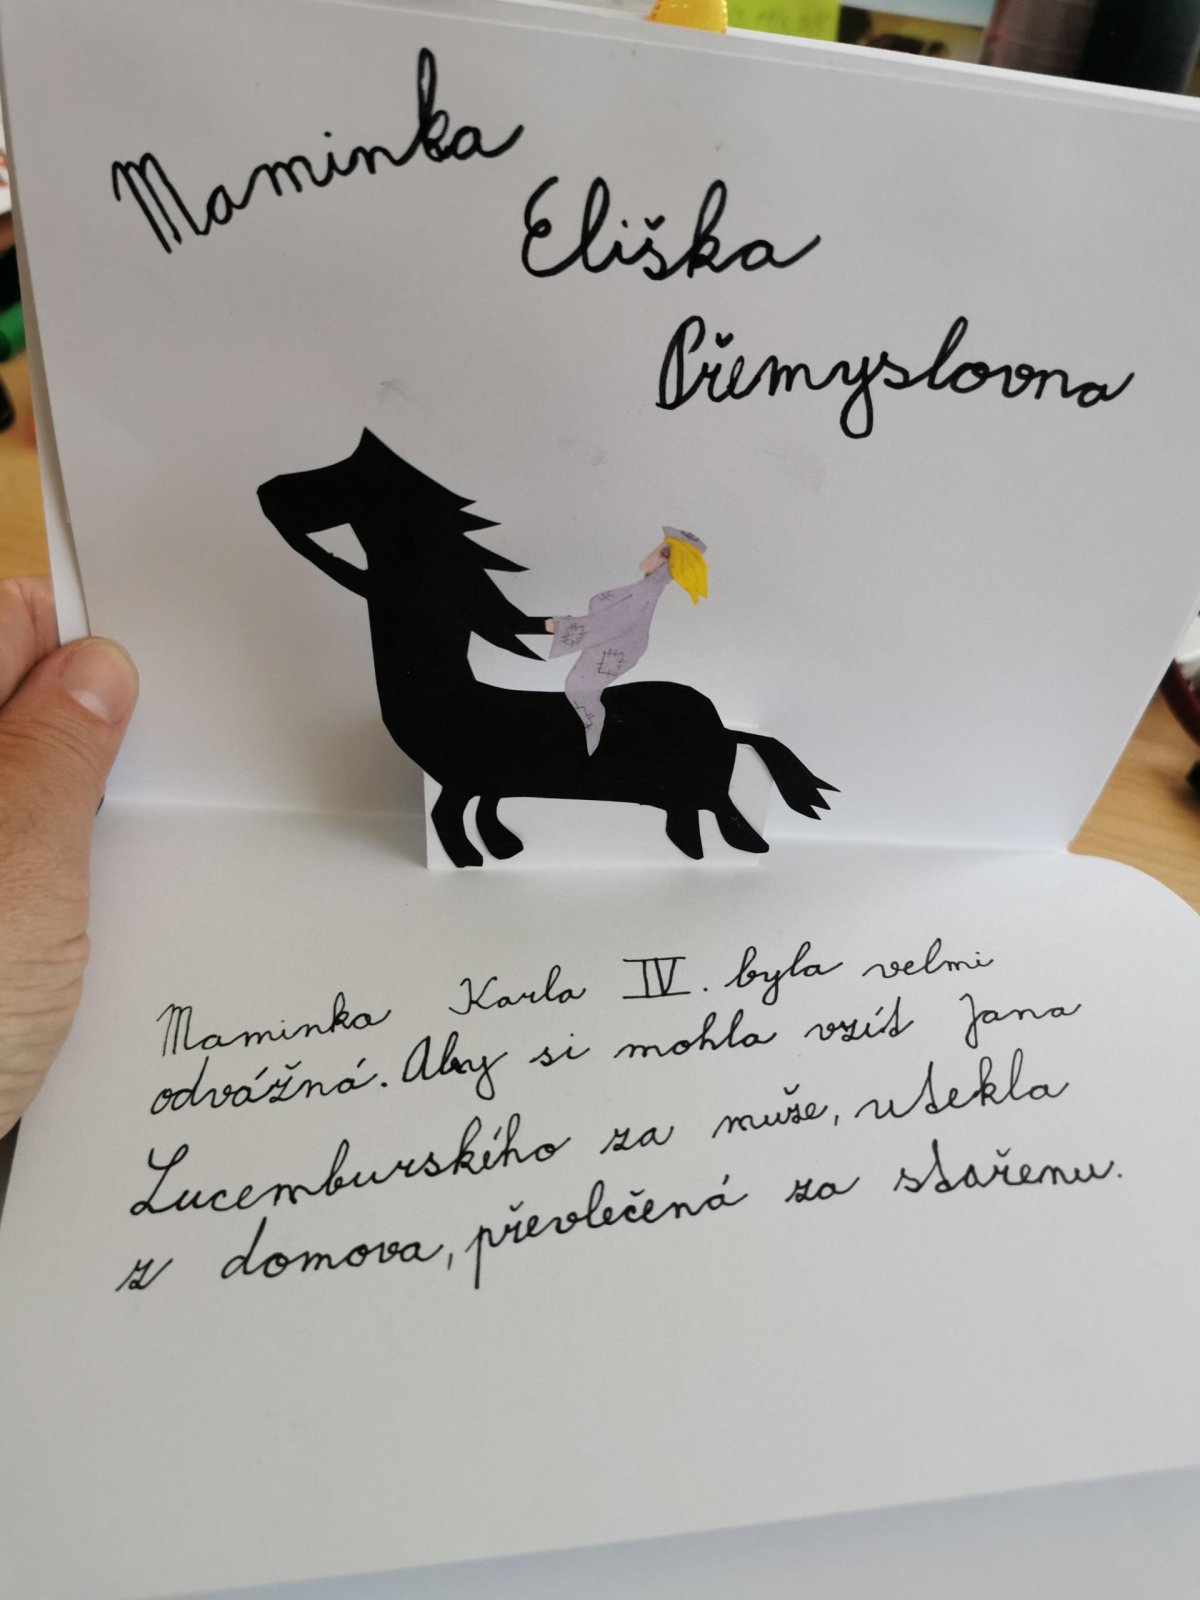 Maminka
Eliška
Přemyslovna
Maminka Karla IV. byla velmi
odvážná. Aby si mohla vzít Jana
Lucemburského za muže, utekla
z domova, převlečená za stařenu.